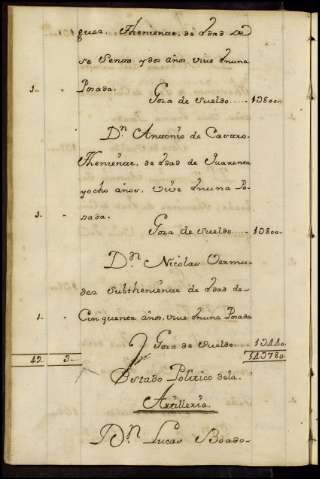 quez. Theniente, de edad de
se senta y dos años, vive en una
1. - Posada.
Goza de sueldo..... 1080..
Dn. Antonio de Castro.
Theniente, de edad de quarenta
y ocho años, vive en una Po-
1. - sada.
Goza de sueldo..... 1080..
Dn. Nicolas Vermu-
des Subtheniente de edad de
1. - Cinquenta años, vive en una Posada
Goza de Sueldo.....
42 3-
Estado Politico dela
Artilleria.
Dn. Lucas Boado-